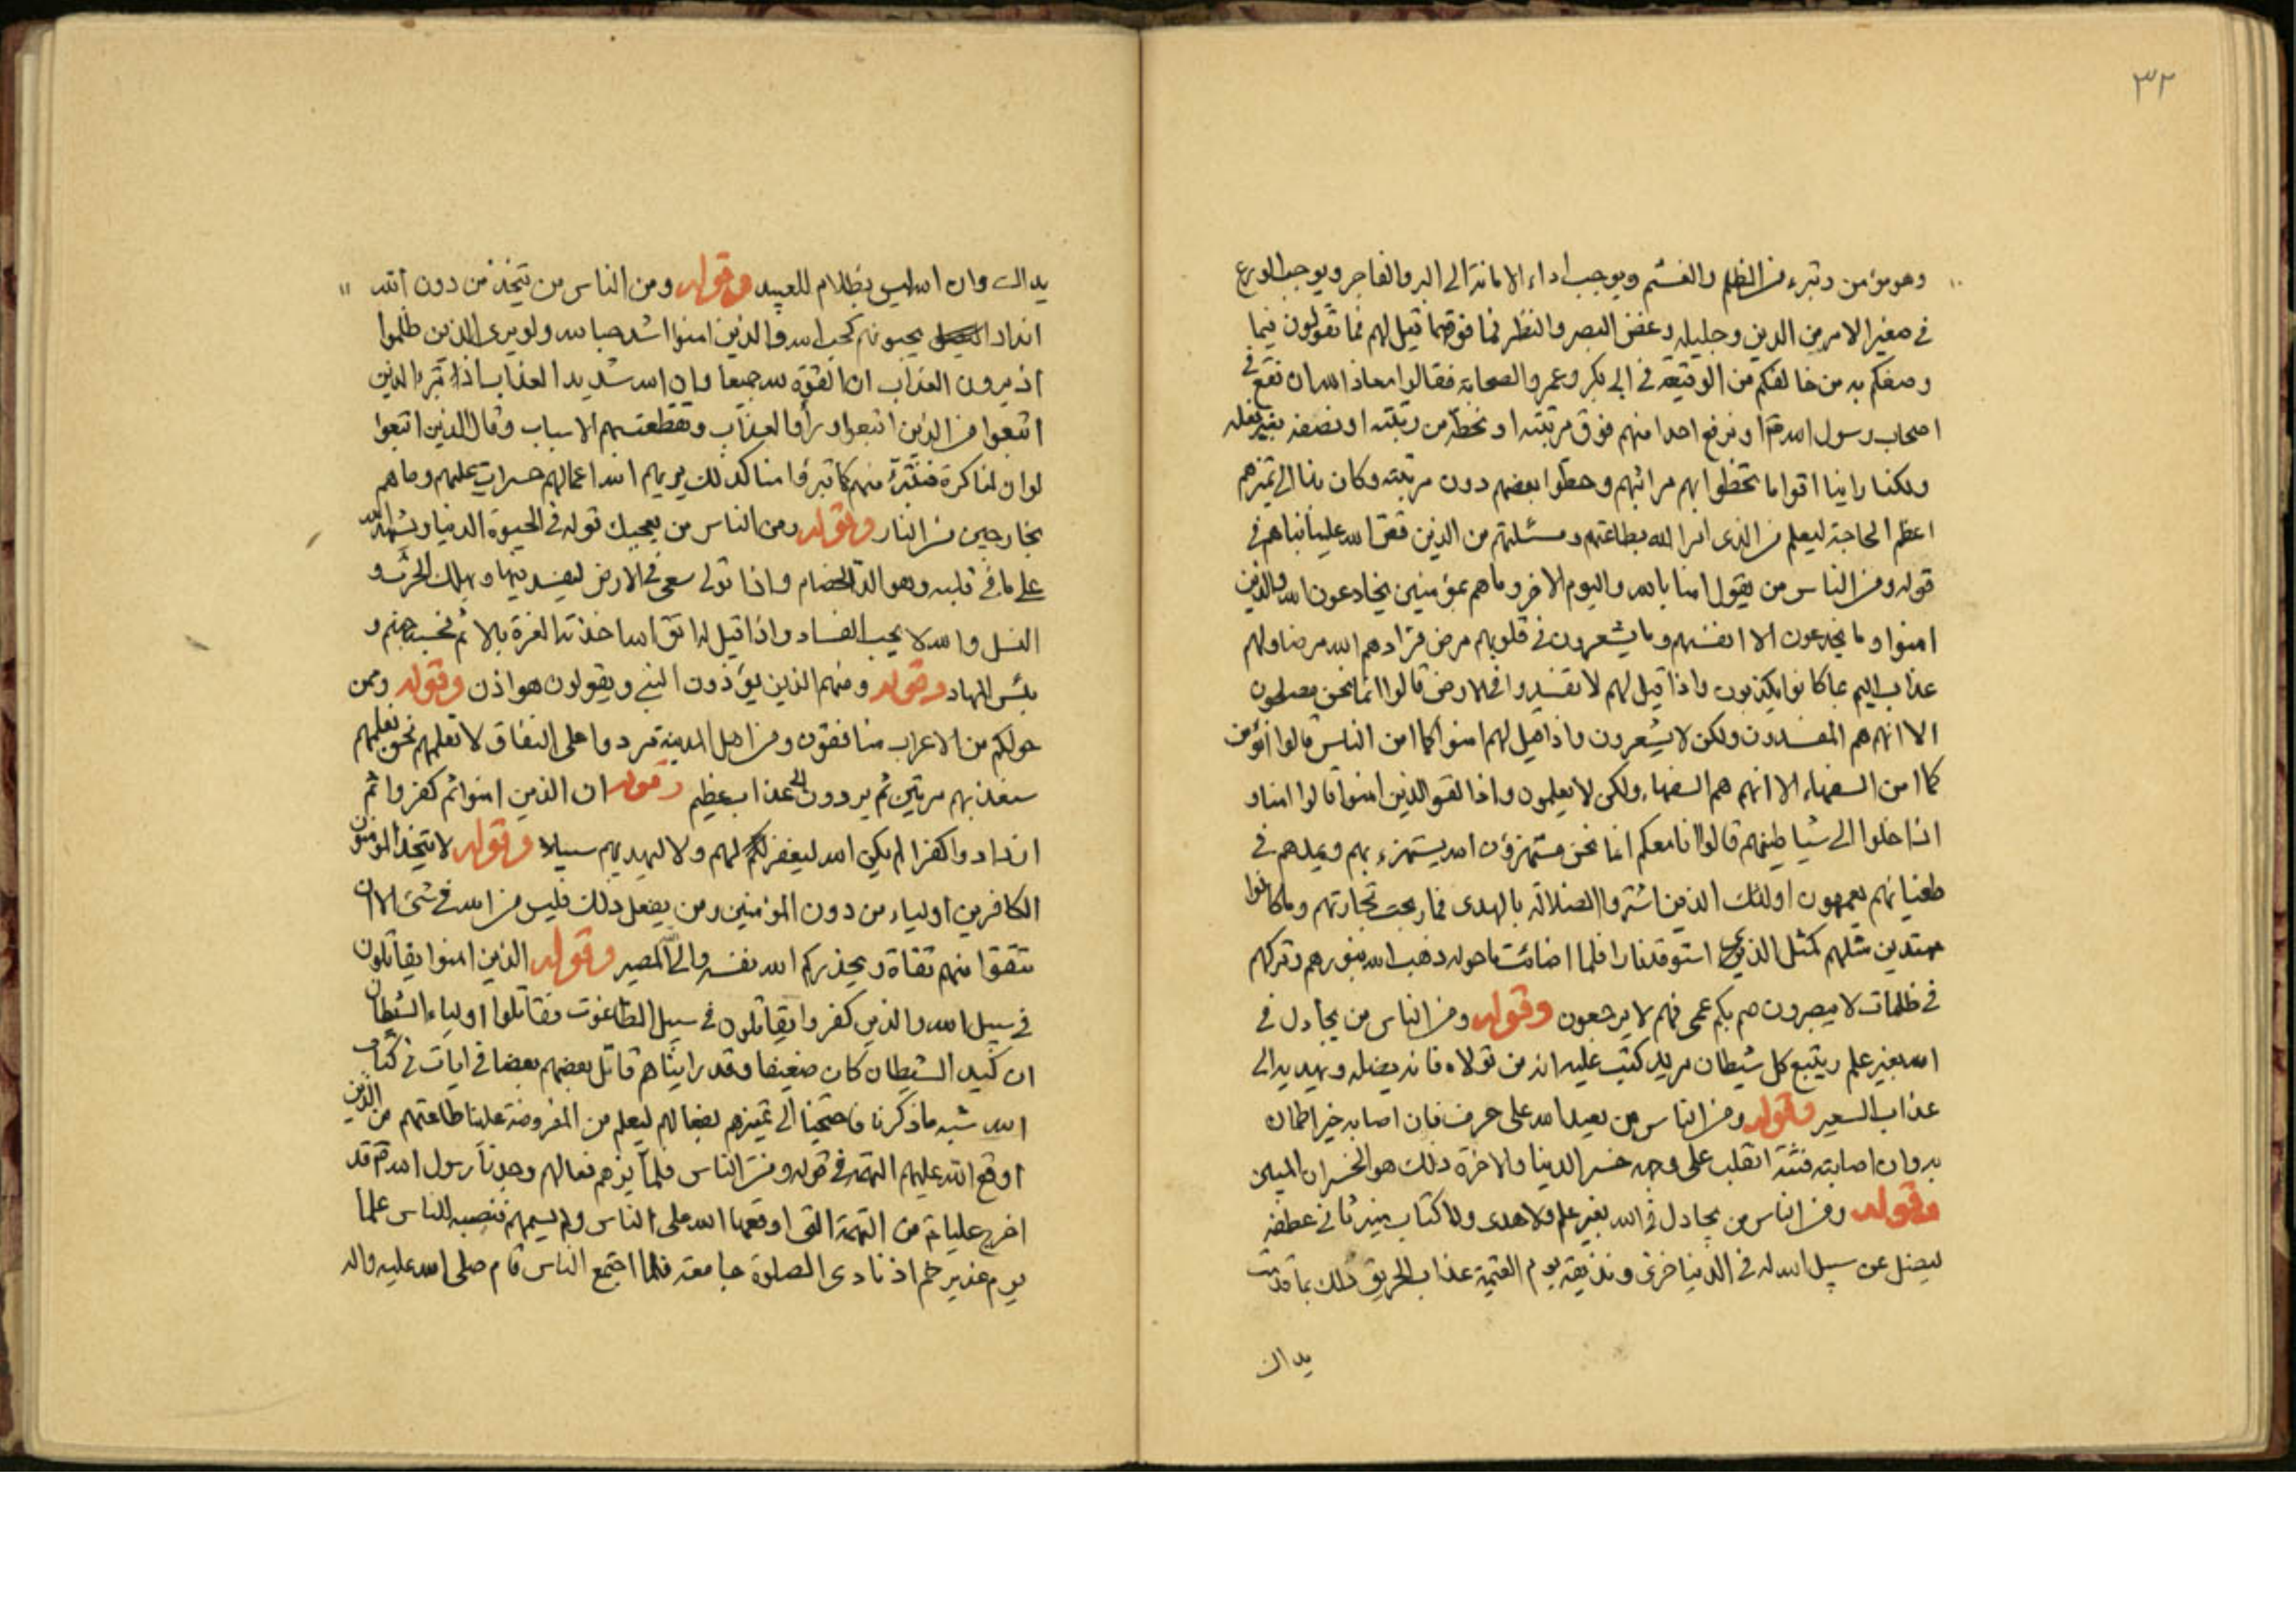 ٣٢
وهو مؤمن وتبرء من الظلم والغشم ويوجب اداء الامانة الى البر والفاجر ويوجب الورع
في صغير الامر من الدين وجليله وغض البصر والنظر فما فوقهما قيل لهم فما تقولون فيما
وصفكم به من خالفكم من الوقيعة في ابي بكر وعمر والصحابة فقالوا معاذ الله ان نقع في
اصحاب رسول الله او نرفع احدا منهم فوق مرتبته او نحطه من رتبته او نصفه بغير فعله
ولكنا راينا اقواما تخطوا بهم مراتبهم وحطوا بعضهم دون مرتبته وكان بنا الى تميزهم
اعظم الحاجة ليعلم من الذى امرا لله بطاعتهم ومسئلتهم من الذين قص الله علينا نباهم في
قوله ومن الناس من يقول امنا بالله واليوم الاخر وما هم بمؤمنين يخادعون الله والذين
امنوا وما يخدعون الا انفسهم وما يشعرون في قلوبهم مرض فزادهم الله مرضا ولهم
عذاب اليم بما كانوا يكذبون واذا قيل لهم لا تفسدوا في الارض قالوا انما نحن مصلحون
الا انهم هم المفسدون ولكن لا يشعرون واذا قيل لهم امنوا كما امن الناس قالوا انؤمن
كما امن السفهاء الا انهم هم السفهاء ولكن لا يعلمون واذا لقوا الذين امنوا قالوا امنا و
اذا خلوا الى شياطينهم قالوا انا معكم انما نحن مستهزؤن الله يستهزء بهم ويمدهم في
طغيانهم يعمهون اولئك الذين اشتروا الضلالة بالهدى فما ربحت تجارتهم وما كانوا
مهتدين مثلهم كمثل الذي استوقد نارا فلما اضائت ما حوله ذهب الله بنورهم وتركهم
في ظلمات لا يبصرون صم بكم عمى فهم لا يرجعون وقوله ومن الناس من يجادل في
الله بغير علم ويتبع كل شيطان مريد كتب عليه انه من تولاه فانه يضله ويهديه الى
عذاب السعير وقوله ومن الناس من يعبد الله على حرف فان اصابه خير اطمان
به وان اصابته فتنة انقلب على وجهه خسر الدنيا والاخرة ذلك هو الخسران المبين
وقوله ومن الناس من يجادل في الله بغير علم ولا هدى ولا كتاب منير ثانى عطفه
ليضل عن سبيل الله له في الدنيا خزى ونذيقه يوم القيمة عذاب الحريق ذلك بما قدمت
يداك
يداك وان الله ليس بظلام للعبيد وقوله ومن الناس من يتخذ من دون الله
اندادا يحبونهم كحب الله والذين امنوا اشد حبا لله ولو يرى الذين ظلموا
اذ يرون العذاب ان القوة لله جميعا وان الله شديد العذاب اذ تبرء الذين
اتبعوا من الذين اتبعوا وراوا العذاب وتقطعت بهم الاسباب وقال الذين اتبعوا
لو ان لنا كرة فنتبرء منهم كما تبرؤا منا كذلك يريهم الله اعمالهم حسرات عليهم وما هم
بخارجين من النار وقوله ومن الناس من يعجبك قوله في الحيوة الدنيا ويشهد الله
على ما في قلبه وهو الد الخصام واذا تولى سعى في الارض ليفسد فيها ويهلك الحرث و
النسل والله لا يحب الفساد واذا قيل له اتق الله اخذته العزة بالاثم فحسبه جهنم و
بئس المهاد وقوله ومنهم الذين يؤذون النبي ويقولون هو اذن وقوله وممن
حولكم من الاعراب منافقون ومن اهل المدينة مردوا على النفاق لا تعلمهم نحن نعلمهم
سنعذبهم مرتين ثم يردون الى عذاب عظيم وقوله ان الذين امنوا ثم كفروا ثم
ازدادوا كفرا لم يكن الله ليغفر لهم ولا ليهديهم سبيلا وقوله لا يتخذ المؤمنون
الكافرين اولياء من دون المؤمنين ومن يفعل ذلك فليس من الله في شئ الا ان
تتقوا منهم تقاة ويحذركم الله نفسه والى الله المصير وقوله الذين امنوا يقاتلون
في سبيل الله والذين كفروا يقاتلون في سبيل الطاغوت فقاتلوا اولياء الشيطان
ان كيد الشيطان كان ضعيفا وقد راينا هم قاتل بعضهم بعضا في ايات في كتاب
الله شبه ما ذكرنا فاحتجنا الى تميزهم بفعالهم ليعلم من المفروضة علينا طاعتهم من الذين
اوقع الله عليهم التهمة في قوله ومن الناس فلما بفعالهم وجدنا رسول الله قد
اخرج عليا من التهمة التى اوقعها الله على الناس ولم يسمهم فنصبه للناس علما
يوم غدير خم اذ نادى الصلوة جامعة فلما اجتمع الناس قام صلى الله عليه واله